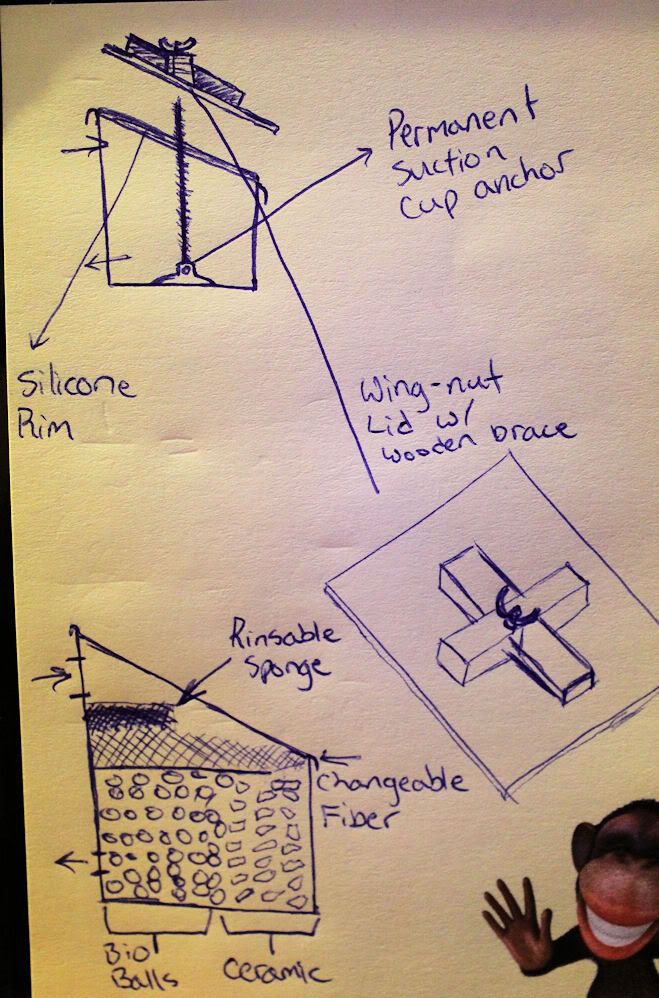 Permanent
Suction
Cup anchor
Silicone
Rim
Wing-nut
Lid w/
wooden brace
Rinsable
Sponge
Changeable
Fiber
Bio
Balls
Ceramic